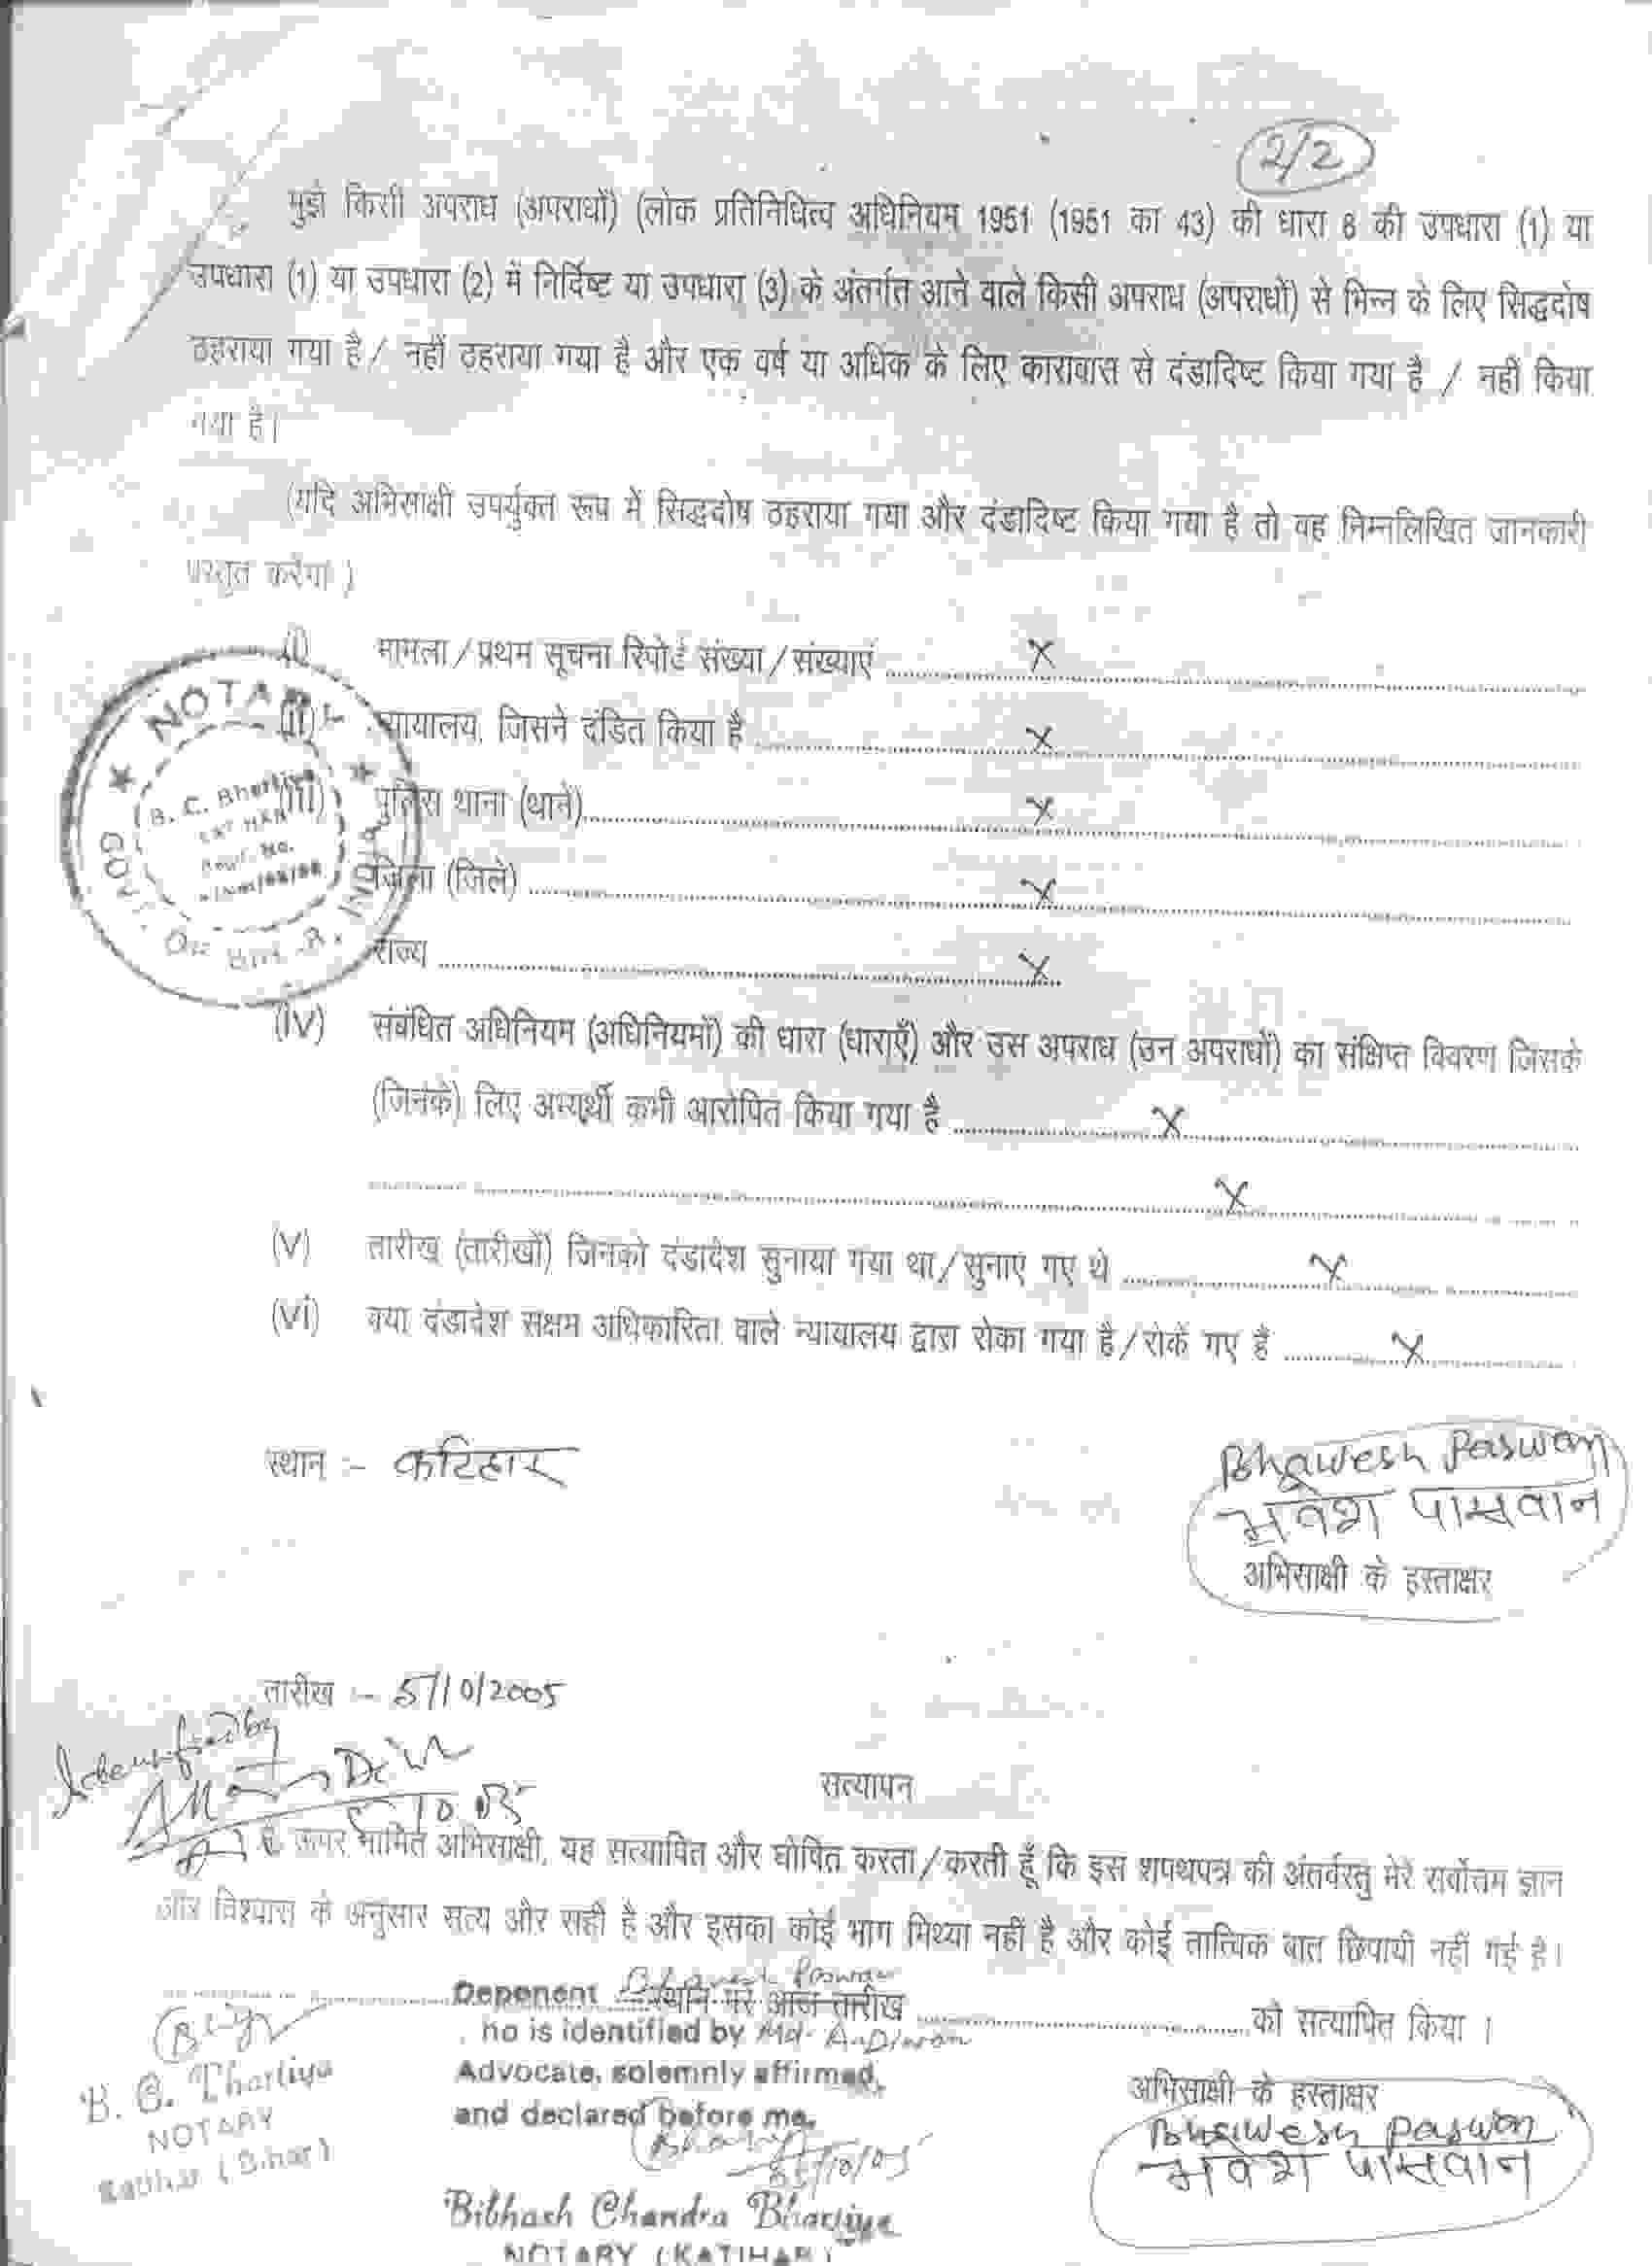 2/2
मुझे किसी अपराध (अपराधों) (लोक प्रतिनिधित्व अधिनियम 1951 (1951 का 43) की धारा 8 की उपधारा (1) या
उपधारा (1) या उपधारा (2) में निर्दिष्ट या उपधारा (3) के अंतर्गत आने वाले किसी अपराध (अपराधों) से भिन्न के लिए सिद्धदोष
ठहराया गया है / नहीं ठहराया गया है और एक वर्ष या अधिक के लिए कारावास से दंडादिष्ट किया गया है / नहीं किया
गया है।
(यदि अभिसाक्षी उपर्युक्त रूप में सिद्धदोष ठहराया गया और दंडादिष्ट किया गया है तो वह निम्नलिखित जानकारी
प्रस्तुत करेगा)
(i) मामला / प्रथम सूचना रिपोर्ट संख्या / संख्याएं ........ X
(ii) न्यायालय, जिसने दंडित किया है ........ X
(iii) पुलिस थाना (थाने) ........ X
जिला (जिले) ........ X
राज्य ........ X
NOTARY
B. C. Bhartiya
GOVT. OF BIHAR, INDIA
(iv) संबंधित अधिनियम (अधिनियमों) की धारा (धाराएँ) और उस अपराध (उन अपराधों) का संक्षिप्त विवरण जिसके
(जिनके) लिए अभ्यर्थी कभी आरोपित किया गया है ........ X
........ X
(v) तारीख (तारीखों) जिनको दंडादेश सुनाया गया था / सुनाए गए थे ........ X
(vi) क्या दंडादेश सक्षम अधिकारिता वाले न्यायालय द्वारा रोका गया है / रोकें गए हैं ........ X
स्थान :- कटिहार
Bhawesh Paswan
भवेश पासवान
अभिसाक्षी के हस्ताक्षर
तारीख :- 5/10/2005
Identified by
सत्यापन
ऊपर नामित अभिसाक्षी, यह सत्यापित और घोषित करता / करती हूँ कि इस शपथपत्र की अंतर्वस्तु मेरे सर्वोत्तम ज्ञान
और विश्वास के अनुसार सत्य और सही है और इसका कोई भाग मिथ्या नहीं है और कोई तात्विक बात छिपायी नहीं गई है।
........ स्थान पर आज तारीख ........ को सत्यापित किया ।
Deponent Bhawesh Paswan
who is identified by Md.
Advocate, solemnly affirmed,
and declared before me,
05/10/05
Bibhash Chandra Bhartiya
NOTARY (KATIHAR)
B. C. Bhartiya
NOTARY
Katihar (Bihar)
अभिसाक्षी के हस्ताक्षर
Bhawesh Paswan
भवेश पासवान